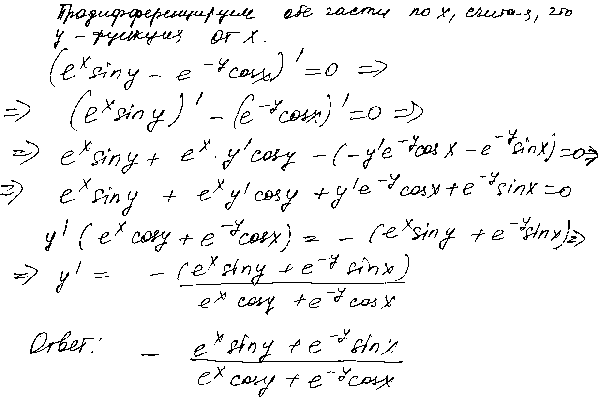 Продифференцируем обе части по x, считая, что
y – функция от x.
(e^x sin y – e^{-y} cos x)' = 0 =>
=> (e^x sin y)' – (e^{-y} cos x)' = 0 =>
=> e^x sin y + e^x · y' cos y – (–y' e^{-y} cos x – e^{-y} sin x) = 0 =>
=> e^x sin y + e^x y' cos y + y' e^{-y} cos x + e^{-y} sin x = 0
y' (e^x cos y + e^{-y} cos x) = – (e^x sin y + e^{-y} sin x) =>
=> y' = – (e^x sin y + e^{-y} sin x) / (e^x cos y + e^{-y} cos x)
Ответ: – (e^x sin y + e^{-y} sin x) / (e^x cos y + e^{-y} cos x)